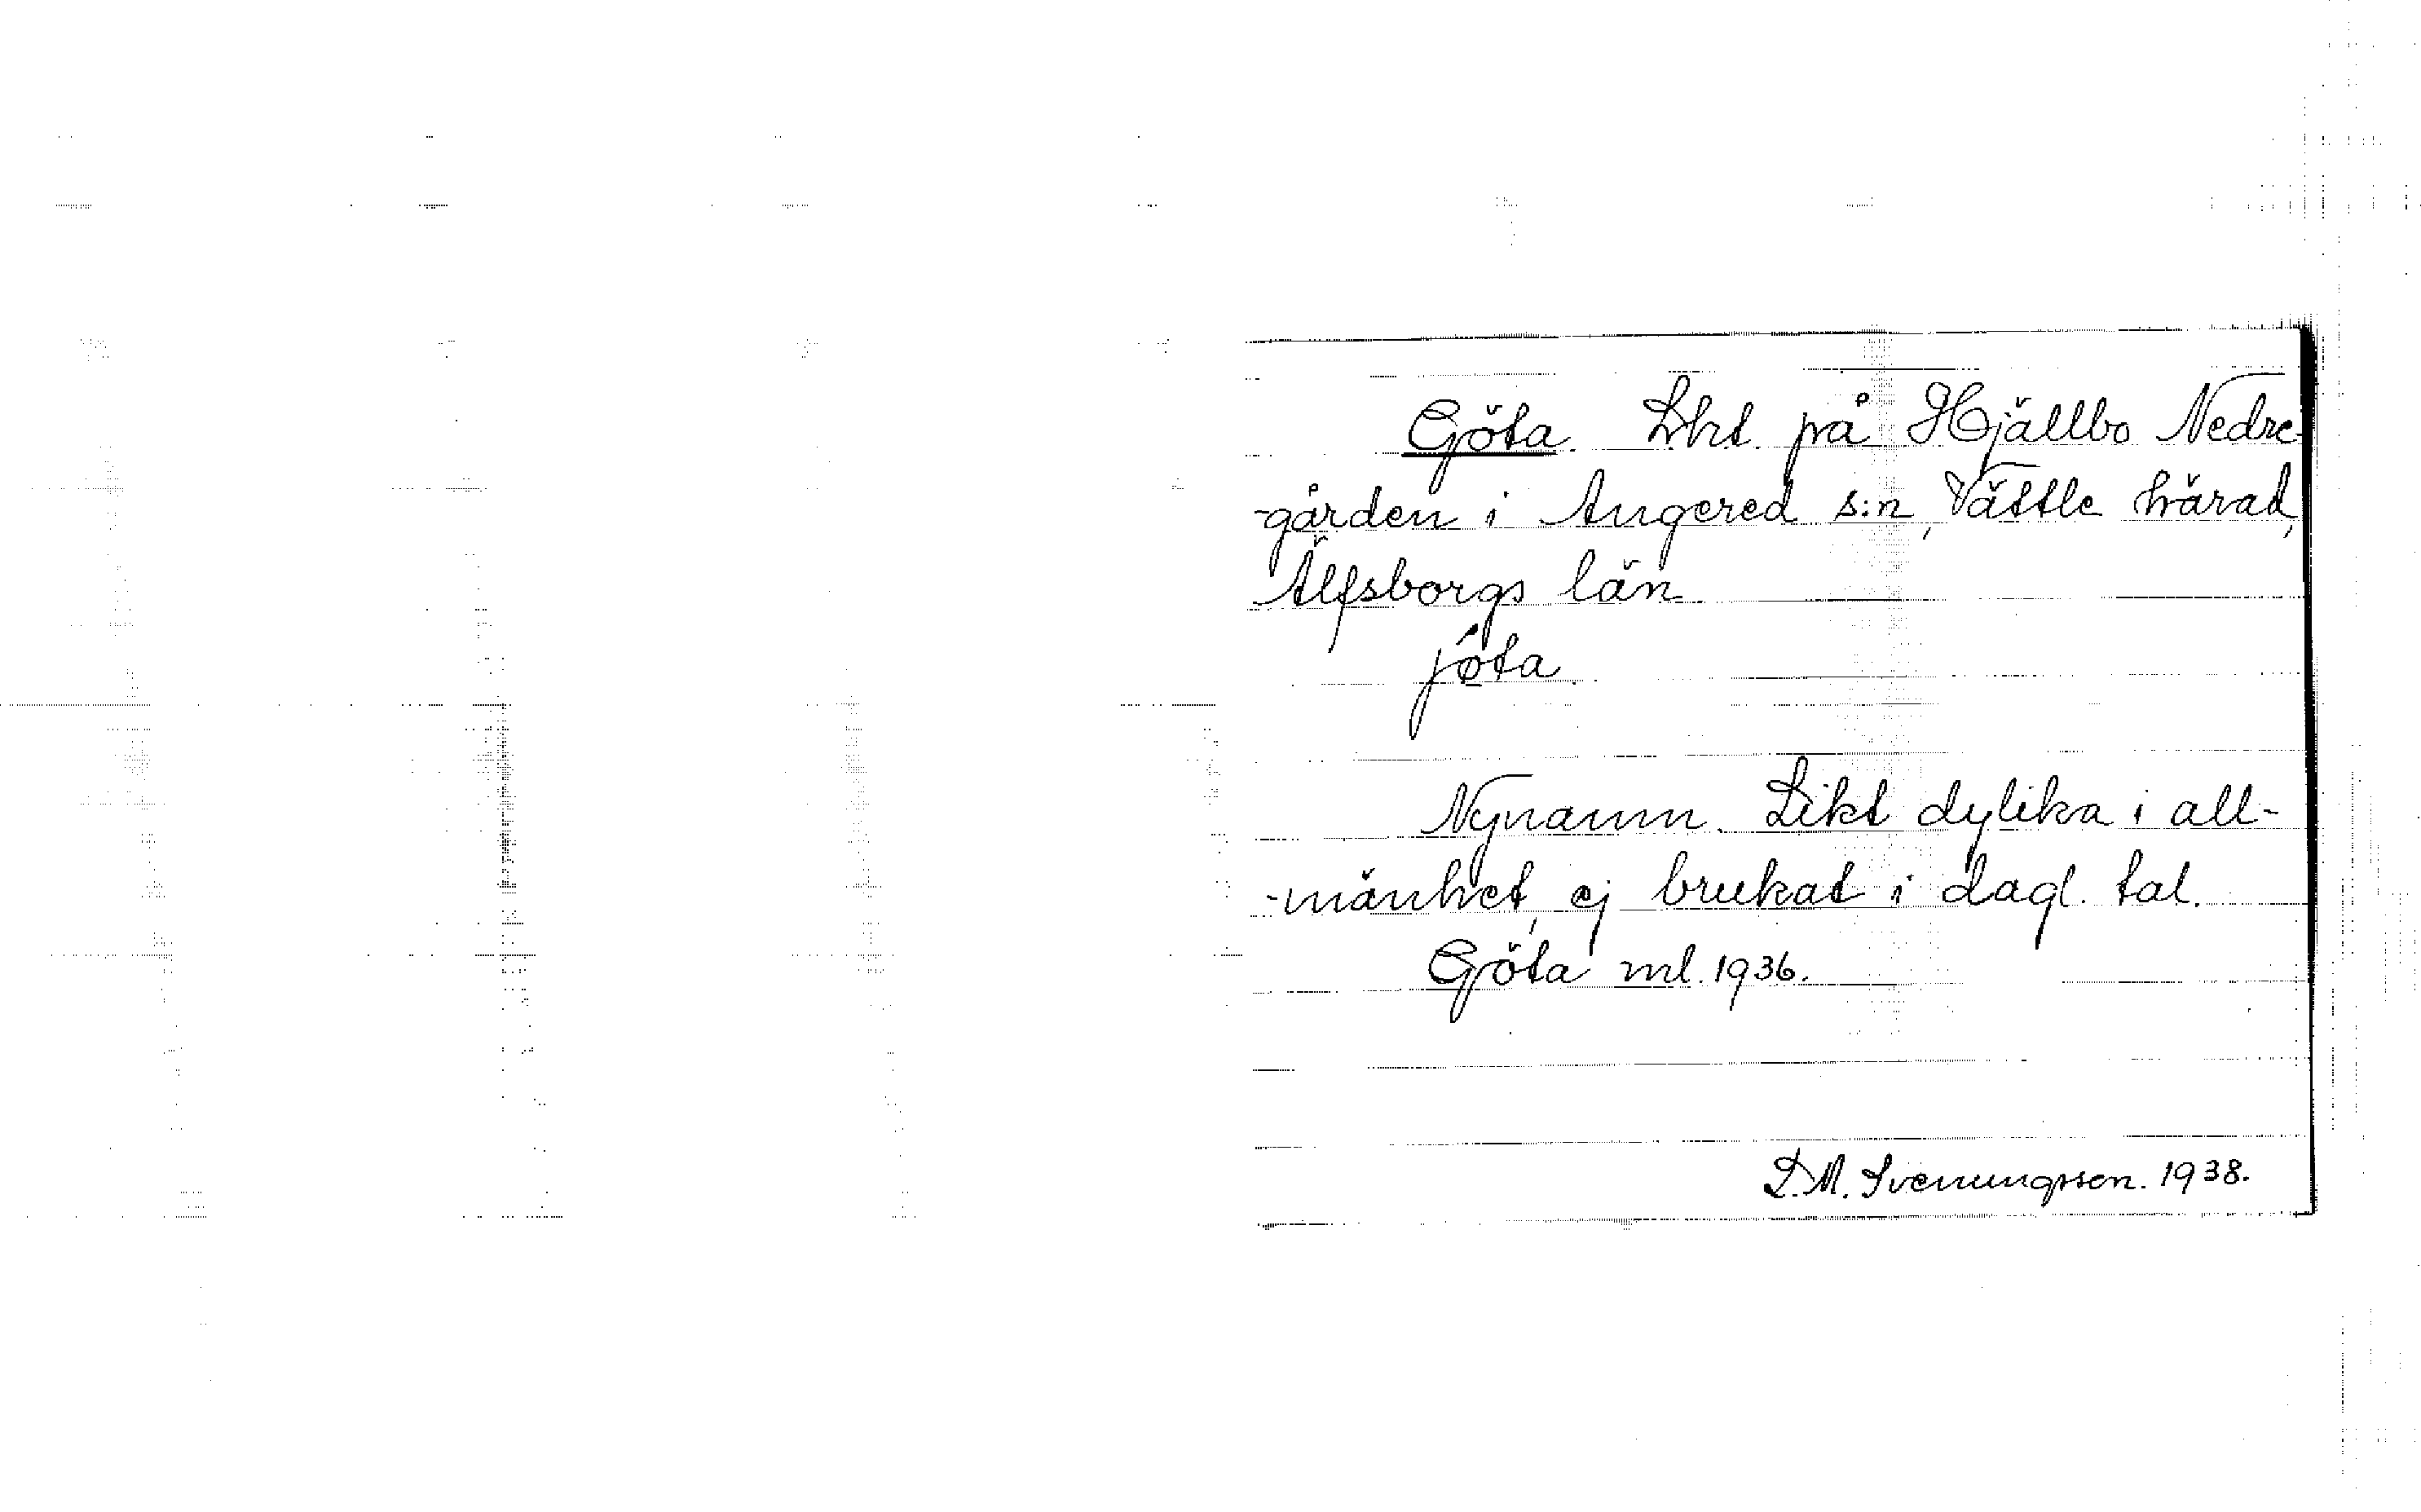 Göta. Lht. på Hjällbo Nedre-
-gården i Angered s:n, Vättle härad,
Älfsborgs län
jø̀ta.
Nynamn. Likt dylika i all-
-mänhet, ej brukat i dagl. tal.
Göta ml. 1936.
L.M. Svenungsson. 1938.